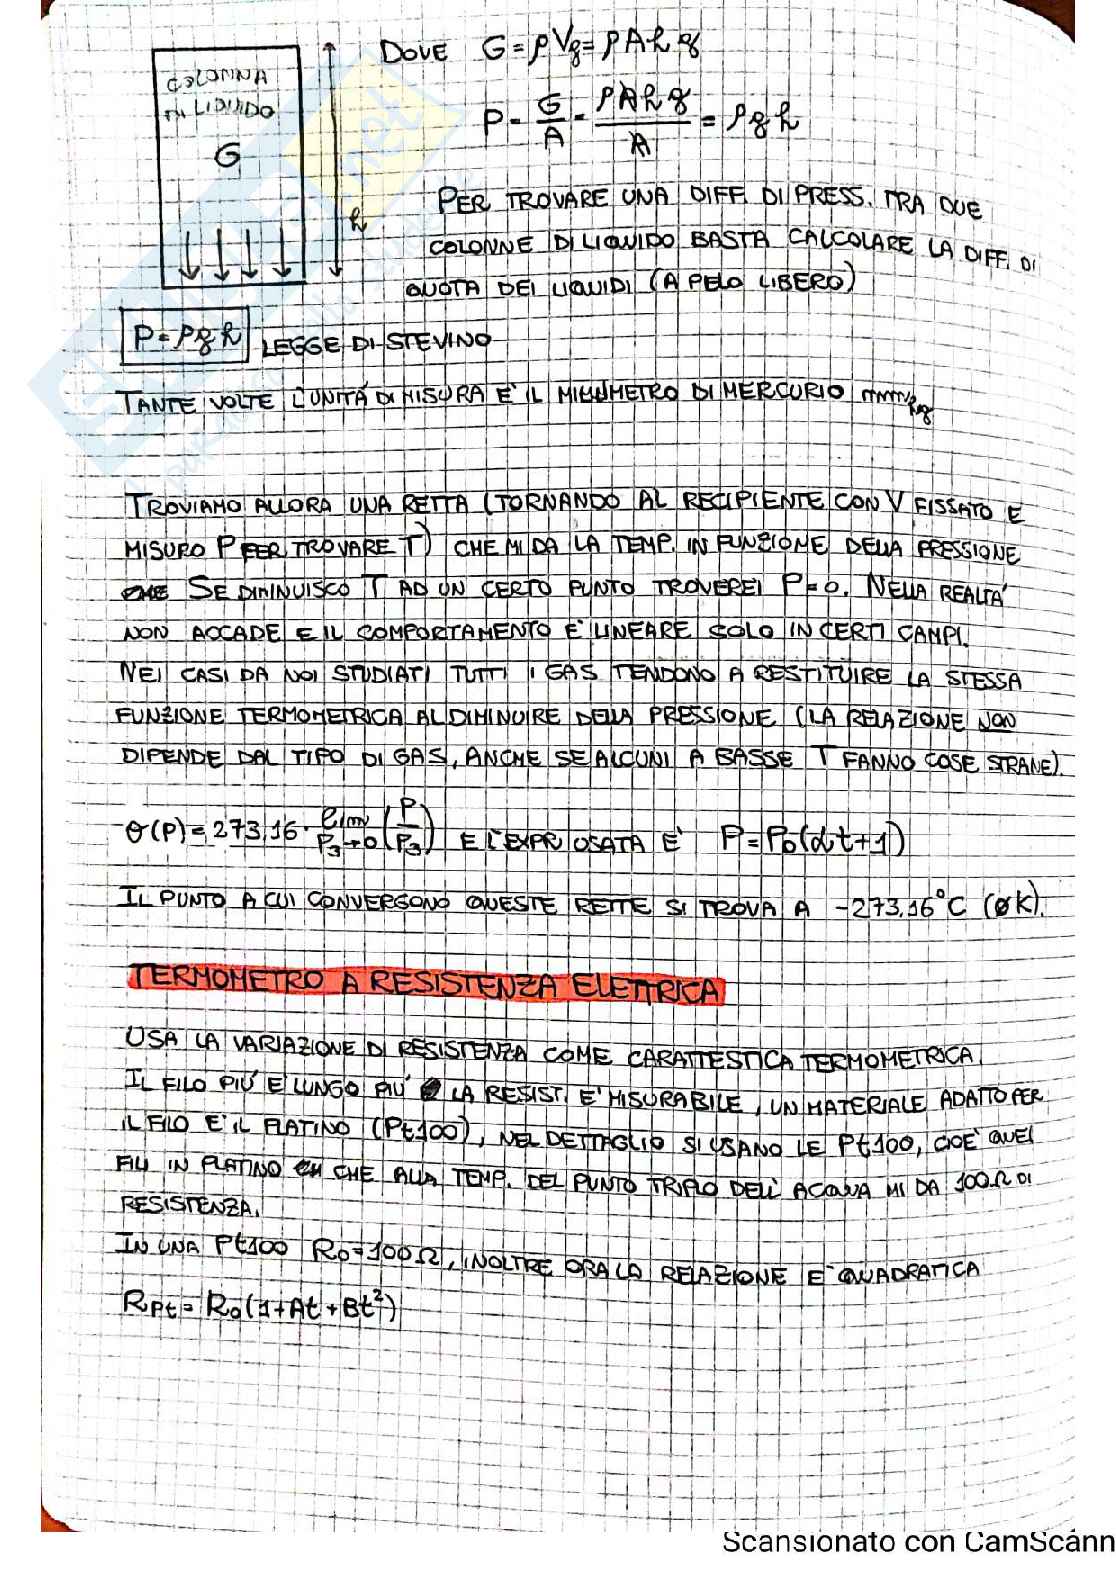 COLONNA
DI LIQUIDO
G
h
DOVE G = ρVg = ρAhg
P = G/A = ρAhg/A = ρgh
PER TROVARE UNA DIFF. DI PRESS. TRA DUE
COLONNE DI LIQUIDO BASTA CALCOLARE LA DIFF. DI
QUOTA DEI LIQUIDI (A PELO LIBERO)
P = ρgh LEGGE DI STEVINO
TANTE VOLTE L'UNITÁ DI MISURA E' IL MILLIMETRO DI MERCURIO mmHg
TROVIAMO ALLORA UNA RETTA (TORNANDO AL RECIPIENTE CON V FISSATO E
MISURO P PER TROVARE T) CHE MI DA LA TEMP. IN FUNZIONE DELLA PRESSIONE
CHE SE DIMINUISCO T AD UN CERTO PUNTO TROVEREI P=0. NELLA REALTA'
NON ACCADE E IL COMPORTAMENTO E' LINEARE SOLO IN CERTI CAMPI.
NEI CASI DA NOI STUDIATI TUTTI I GAS TENDONO A RESTITUIRE LA STESSA
FUNZIONE TERMOMETRICA AL DIMINUIRE DELLA PRESSIONE (LA RELAZIONE NON
DIPENDE DAL TIPO DI GAS, ANCHE SE ALCUNI A BASSE T FANNO COSE STRANE).
θ(P) = 273,16 · lim P₃→0 (P/P₃) E L'EXPR USATA E' P = P₀(αt+1)
IL PUNTO A CUI CONVERGONO QUESTE RETTE SI TROVA A -273.16°C (0K).
TERMOMETRO A RESISTENZA ELETTRICA
USA LA VARIAZIONE DI RESISTENZA COME CARATTESTICA TERMOMETRICA.
IL FILO PIU' E' LUNGO PIU' LA RESIST. E' MISURABILE, UN MATERIALE ADATTO PER
IL FILO E' IL PLATINO (Pt100), NEL DETTAGLIO SI USANO LE Pt100, CIOE' QUEI
FILI IN PLATINO CHE ALLA TEMP. DEL PUNTO TRIPLO DELL'ACQUA MI DA 100Ω DI
RESISTENZA.
IN UNA Pt100 R₀=100Ω, INOLTRE ORA LA RELAZIONE E' QUADRATICA
RPt = R₀(1+At+Bt²)
Scansionato con CamScann